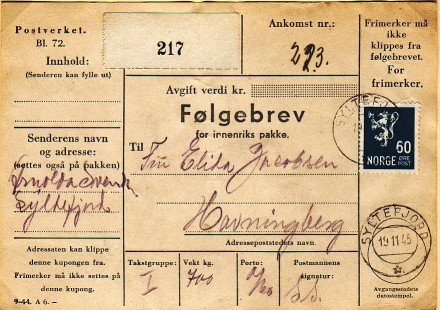 Postverket.
Bl. 72.
Innhold:
(Senderen kan fylle ut)
217
Ankomst nr.:
293.
Frimerker må
ikke
klippes fra
følgebrevet.
For
frimerker.
Avgift verdi kr.
Følgebrev
for innenriks pakke.
Senderens navn
og adresse:
(settes også på pakken)
Syltefjord
Til Fru Elida Jacobsen
Havningberg
Adressepoststedets navn.
SYLTEFJORD
60
NORGE ØRE
POST
SYLTEFJORD
19 11 45
Adressaten kan klippe
denne kupongen fra.
Frimerker må ikke settes på
denne kupong.
9-44. A 6. —
Takstgruppe:
I
Vekt kg.
700
Porto:
Postmannens
signatur:
Avgangsstedets
datostempel.